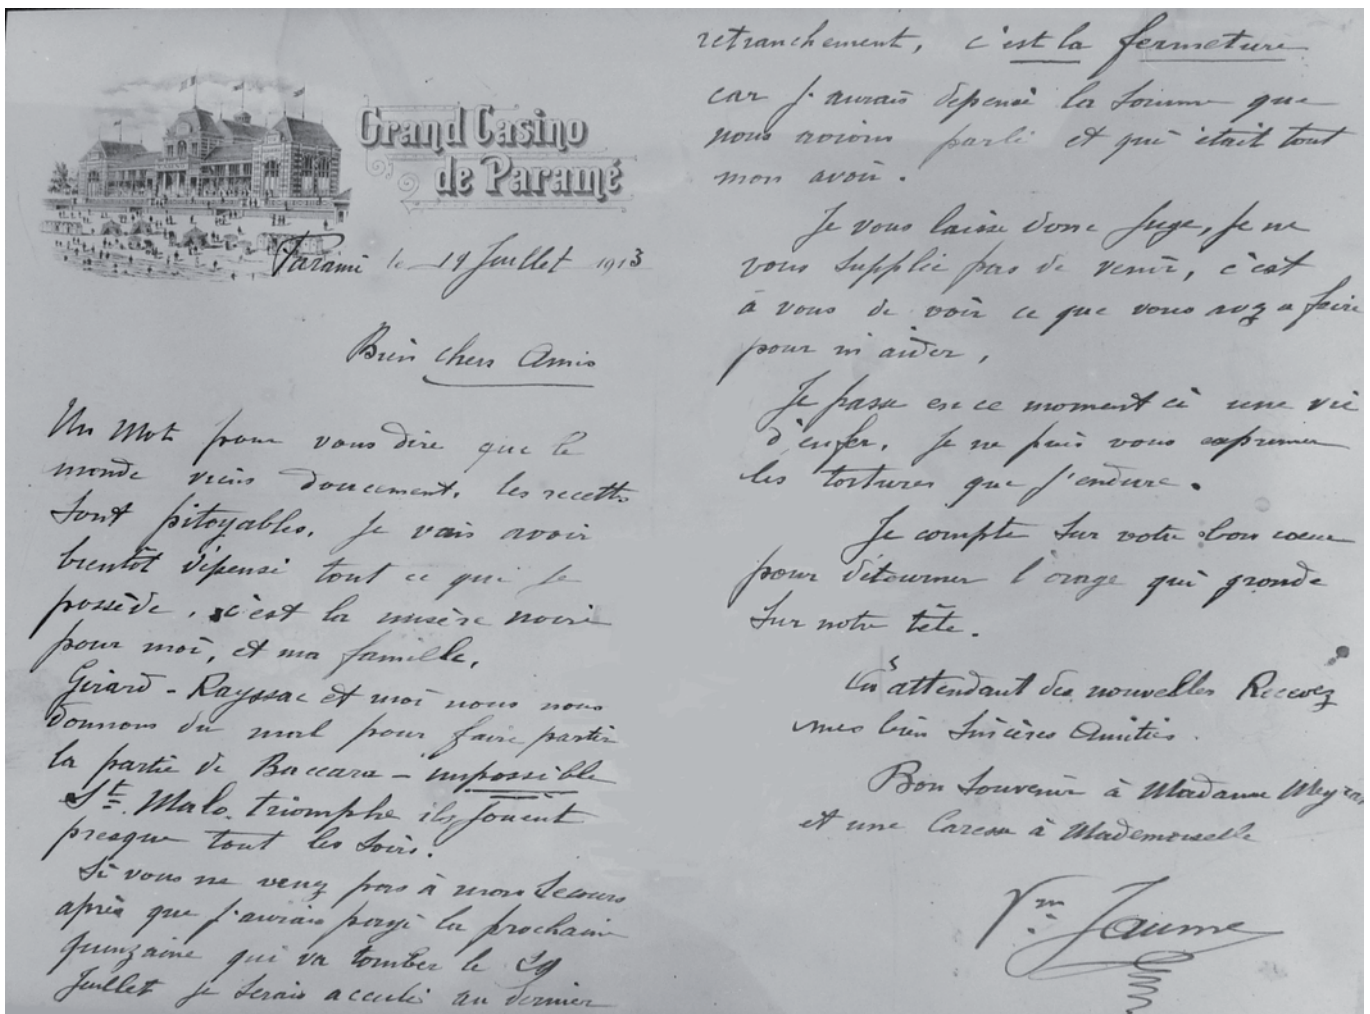 Grand Casino
de Paramé
Paramé le 19 Juillet 1913
Bien chers Amis
Un Mot pour vous dire que le
monde viens doucement, les recettes
sont pitoyables. Je vais avoir
bientôt dépensé tout ce que je
possède, c'est la misère noire
pour moi, et ma famille,
Girard - Rayssac et moi nous nous
donnons du mal pour faire partir
la partie de Baccara - impossible
St. Malo. triomphe ils jouent
presque tout les soirs.
Si vous ne venez pas à mon Secours
après que j'aurais payé la prochaine
quinzaine qui va tomber le 29
Juillet je serais acculé au dernier
retranchement, c'est la fermeture
car j'aurais depensé la somme que
nous avions parlé et qui était tout
mon avoir.
Je vous laisse donc juge, je ne
vous supplie pas de venir, c'est
à vous de voir ce que vous avez a faire
pour m'aider,
Je passe en ce moment ci une vie
d'enfer. Je ne puis vous exprimer
les tortures que j'endure.
Je compte sur votre bon coeur
pour détourner l'orage qui gronde
sur notre tête.
En attendant des nouvelles Recevez
mes bien sincères Amitiés.
Bon Souvenir à Madame
et une Caresse à Mademoiselle
Vm. Jaume